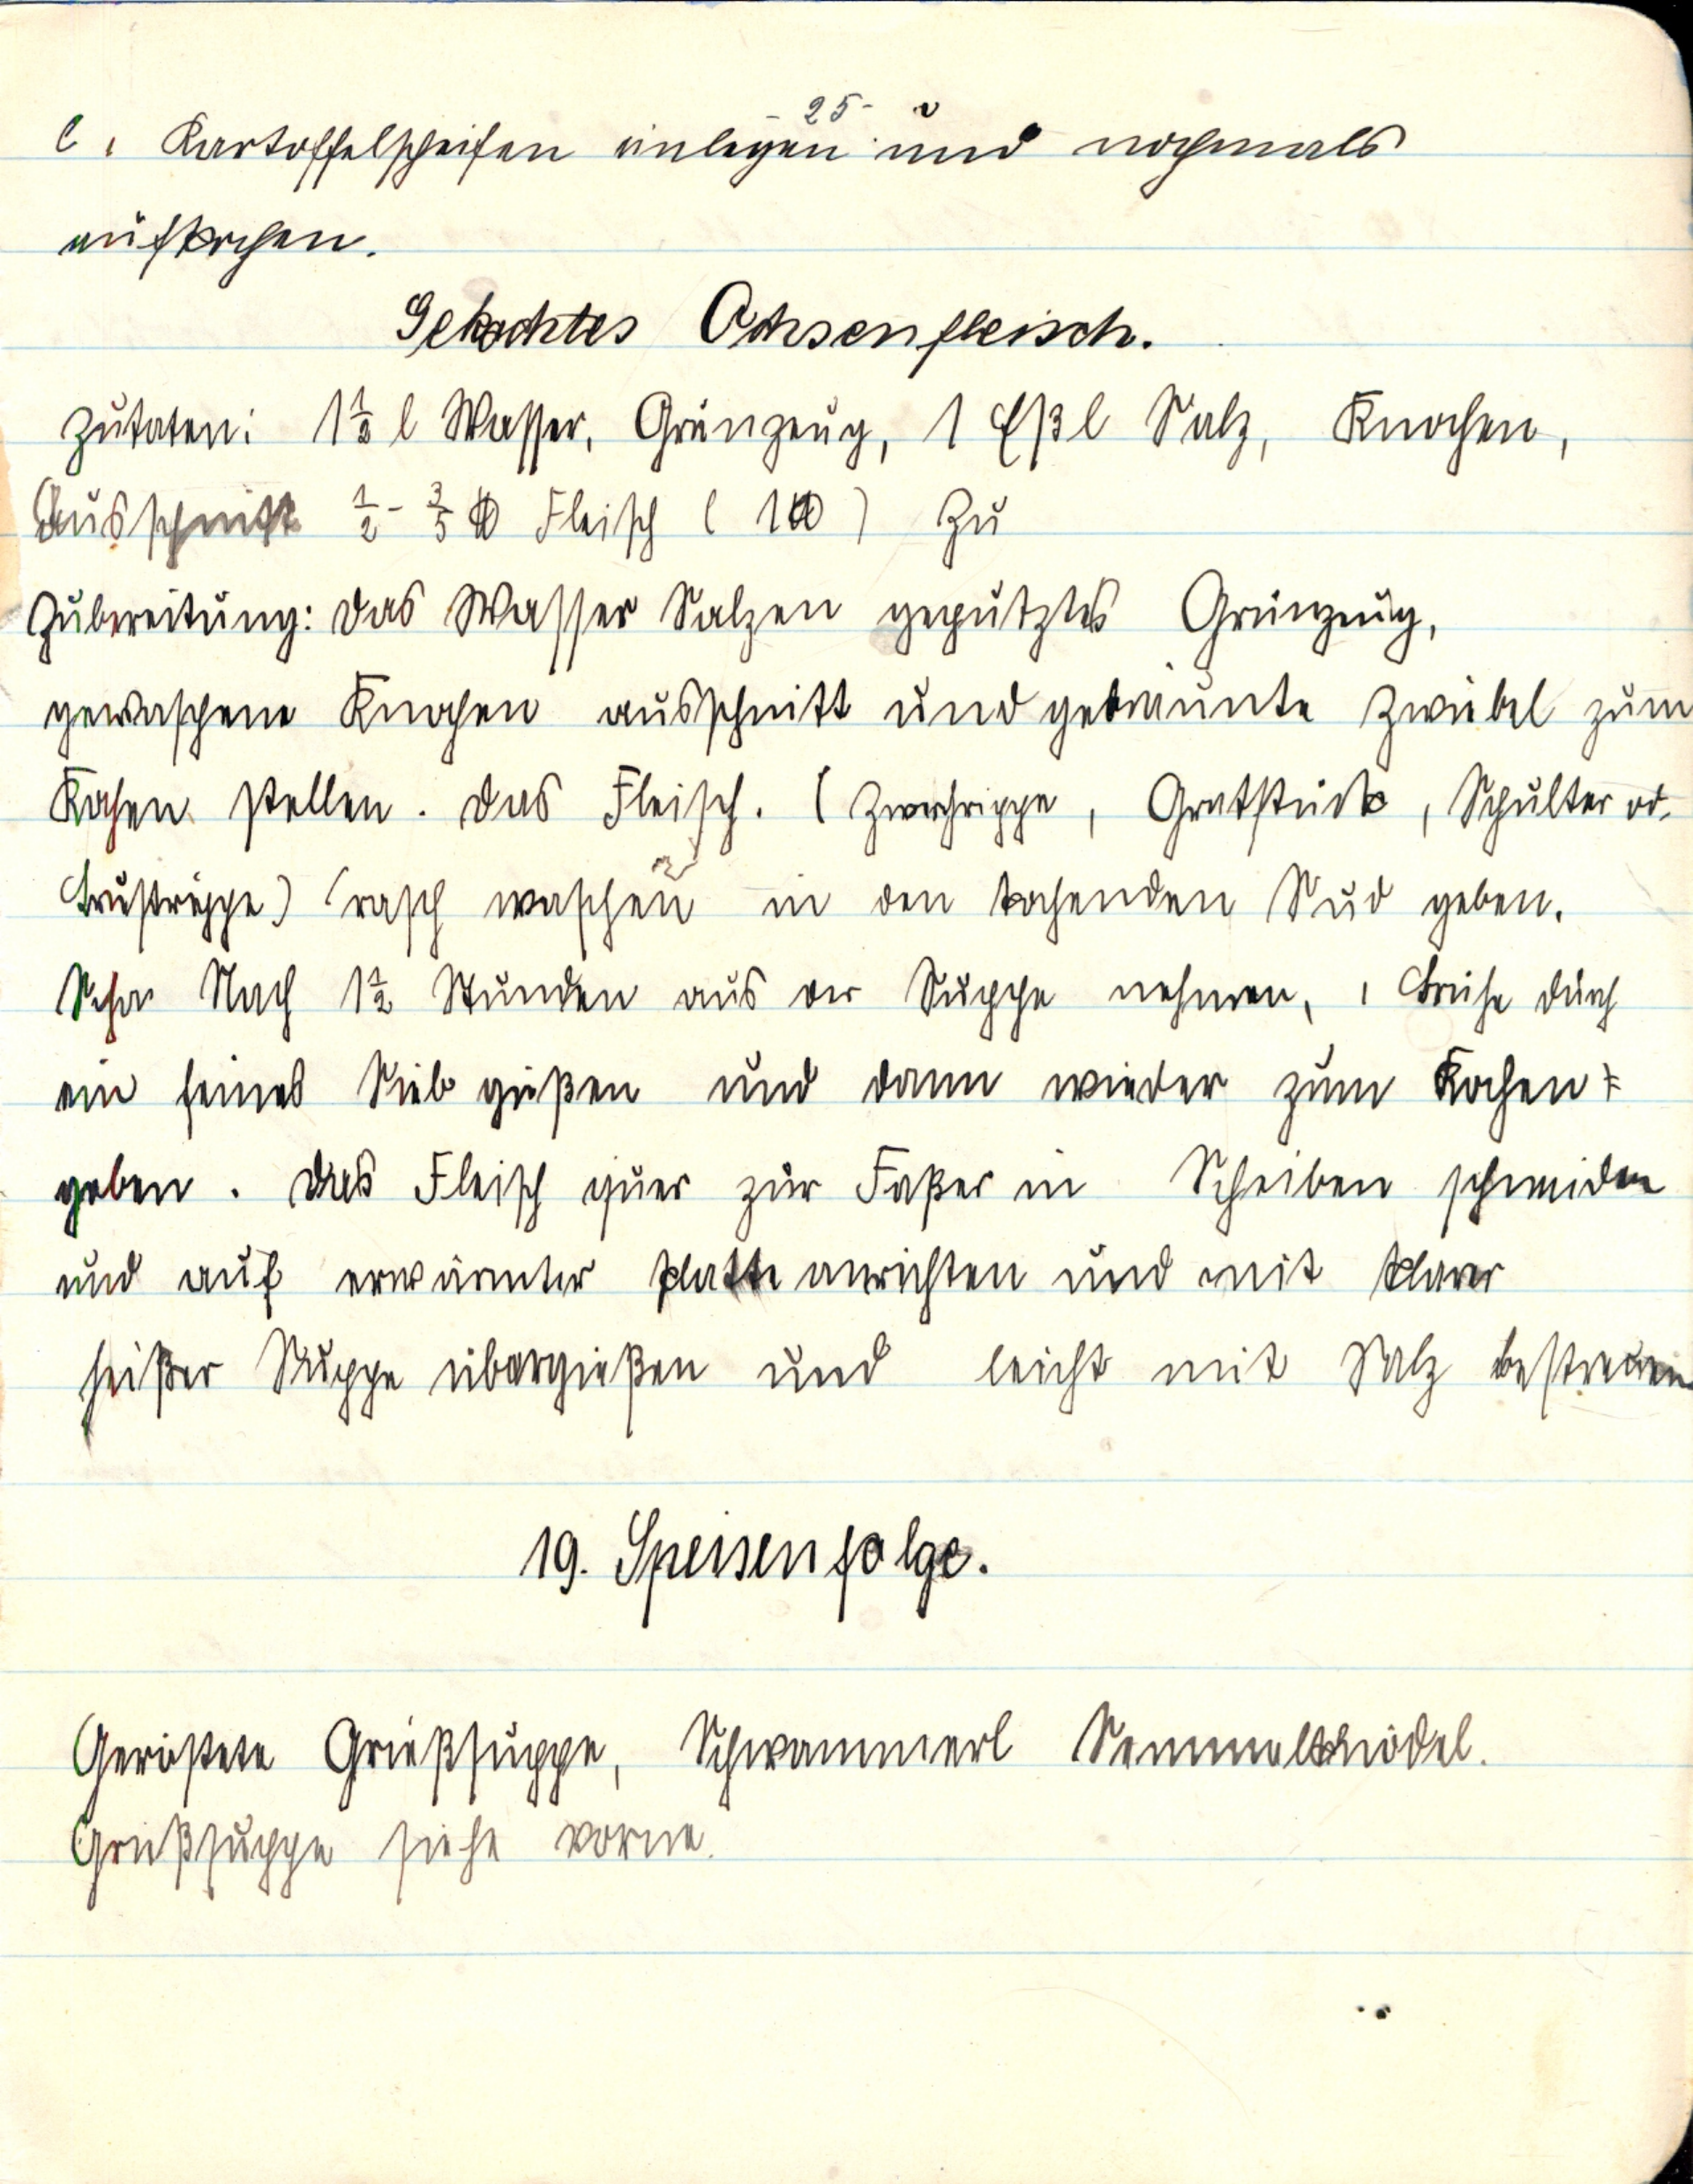 25
l, Kartoffelscheifen einlegen und nochmals
aufkochen.
Gekochtes Ochsenfleisch.
Zutaten: 1½ l Wasser, Grünzeug, 1 Eßl Salz, Knochen,
Ausschnitt ½ - ⅗ ℔ Fleisch ( 1 ℔ ) Zu
Zubereitung: Das Wasser Salzen geputztes Grünzeug,
gewaschene Knochen ausschnitt und gebräunte Zwiebel zum
Kochen stellen. Das Fleisch. ( Zwerchrippe, Gratstück, Schulter od.
Brustrippe) rasch waschen in den kochenden Sud geben.
Nach 1½ Stunden aus der Suppe nehmen, Brühe durch
ein feines Sieb gießen und dann wieder zum Kochen
geben. Das Fleisch quer zur Faßer in Scheiben schneiden
und auf erwärmter Platte anrichten und mit klarer
heißer Suppe übergießen und leicht mit Salz bestreuen
19. Speisenfolge.
Geröstete Grießsuppe, Schwammerl Semmelknödel.
Grießsuppe siehe vorne.